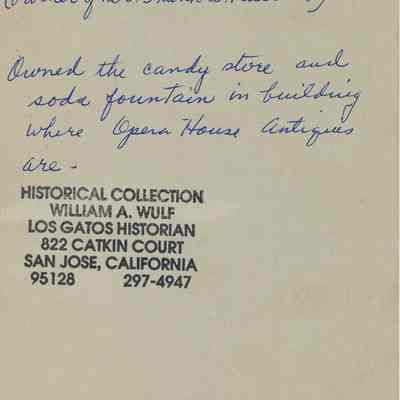 Owned the candy store and
soda fountain in building
where Opera House Antiques
are -
HISTORICAL COLLECTION
WILLIAM A. WULF
LOS GATOS HISTORIAN
822 CATKIN COURT
SAN JOSE, CALIFORNIA
95128 297-4947